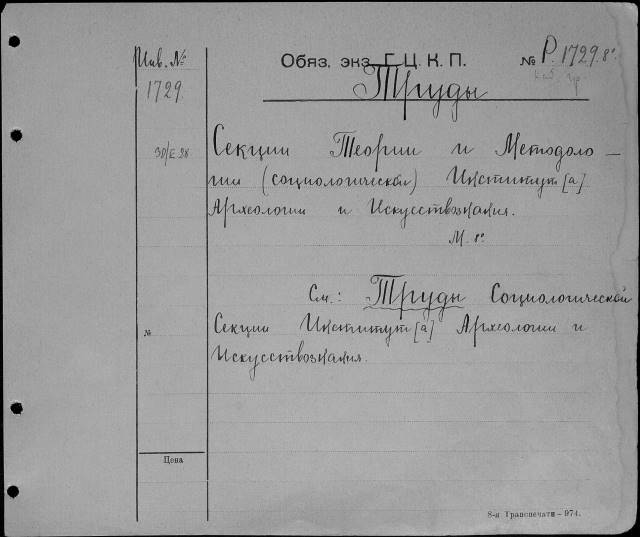 Инв. №
1729
Обяз. экз. Г.Ц.К.П.
№ Р. 1729. 8°
Труды
Секции Теории и Методоло-
гии (социологической) Институт[а]
Археологии и Искусствознания.
М. 8°
См.: Труды Социологической
Секции Институт[а] Археологии и
Искусствознания.
№
Цена
8-я Транспечати – 974.